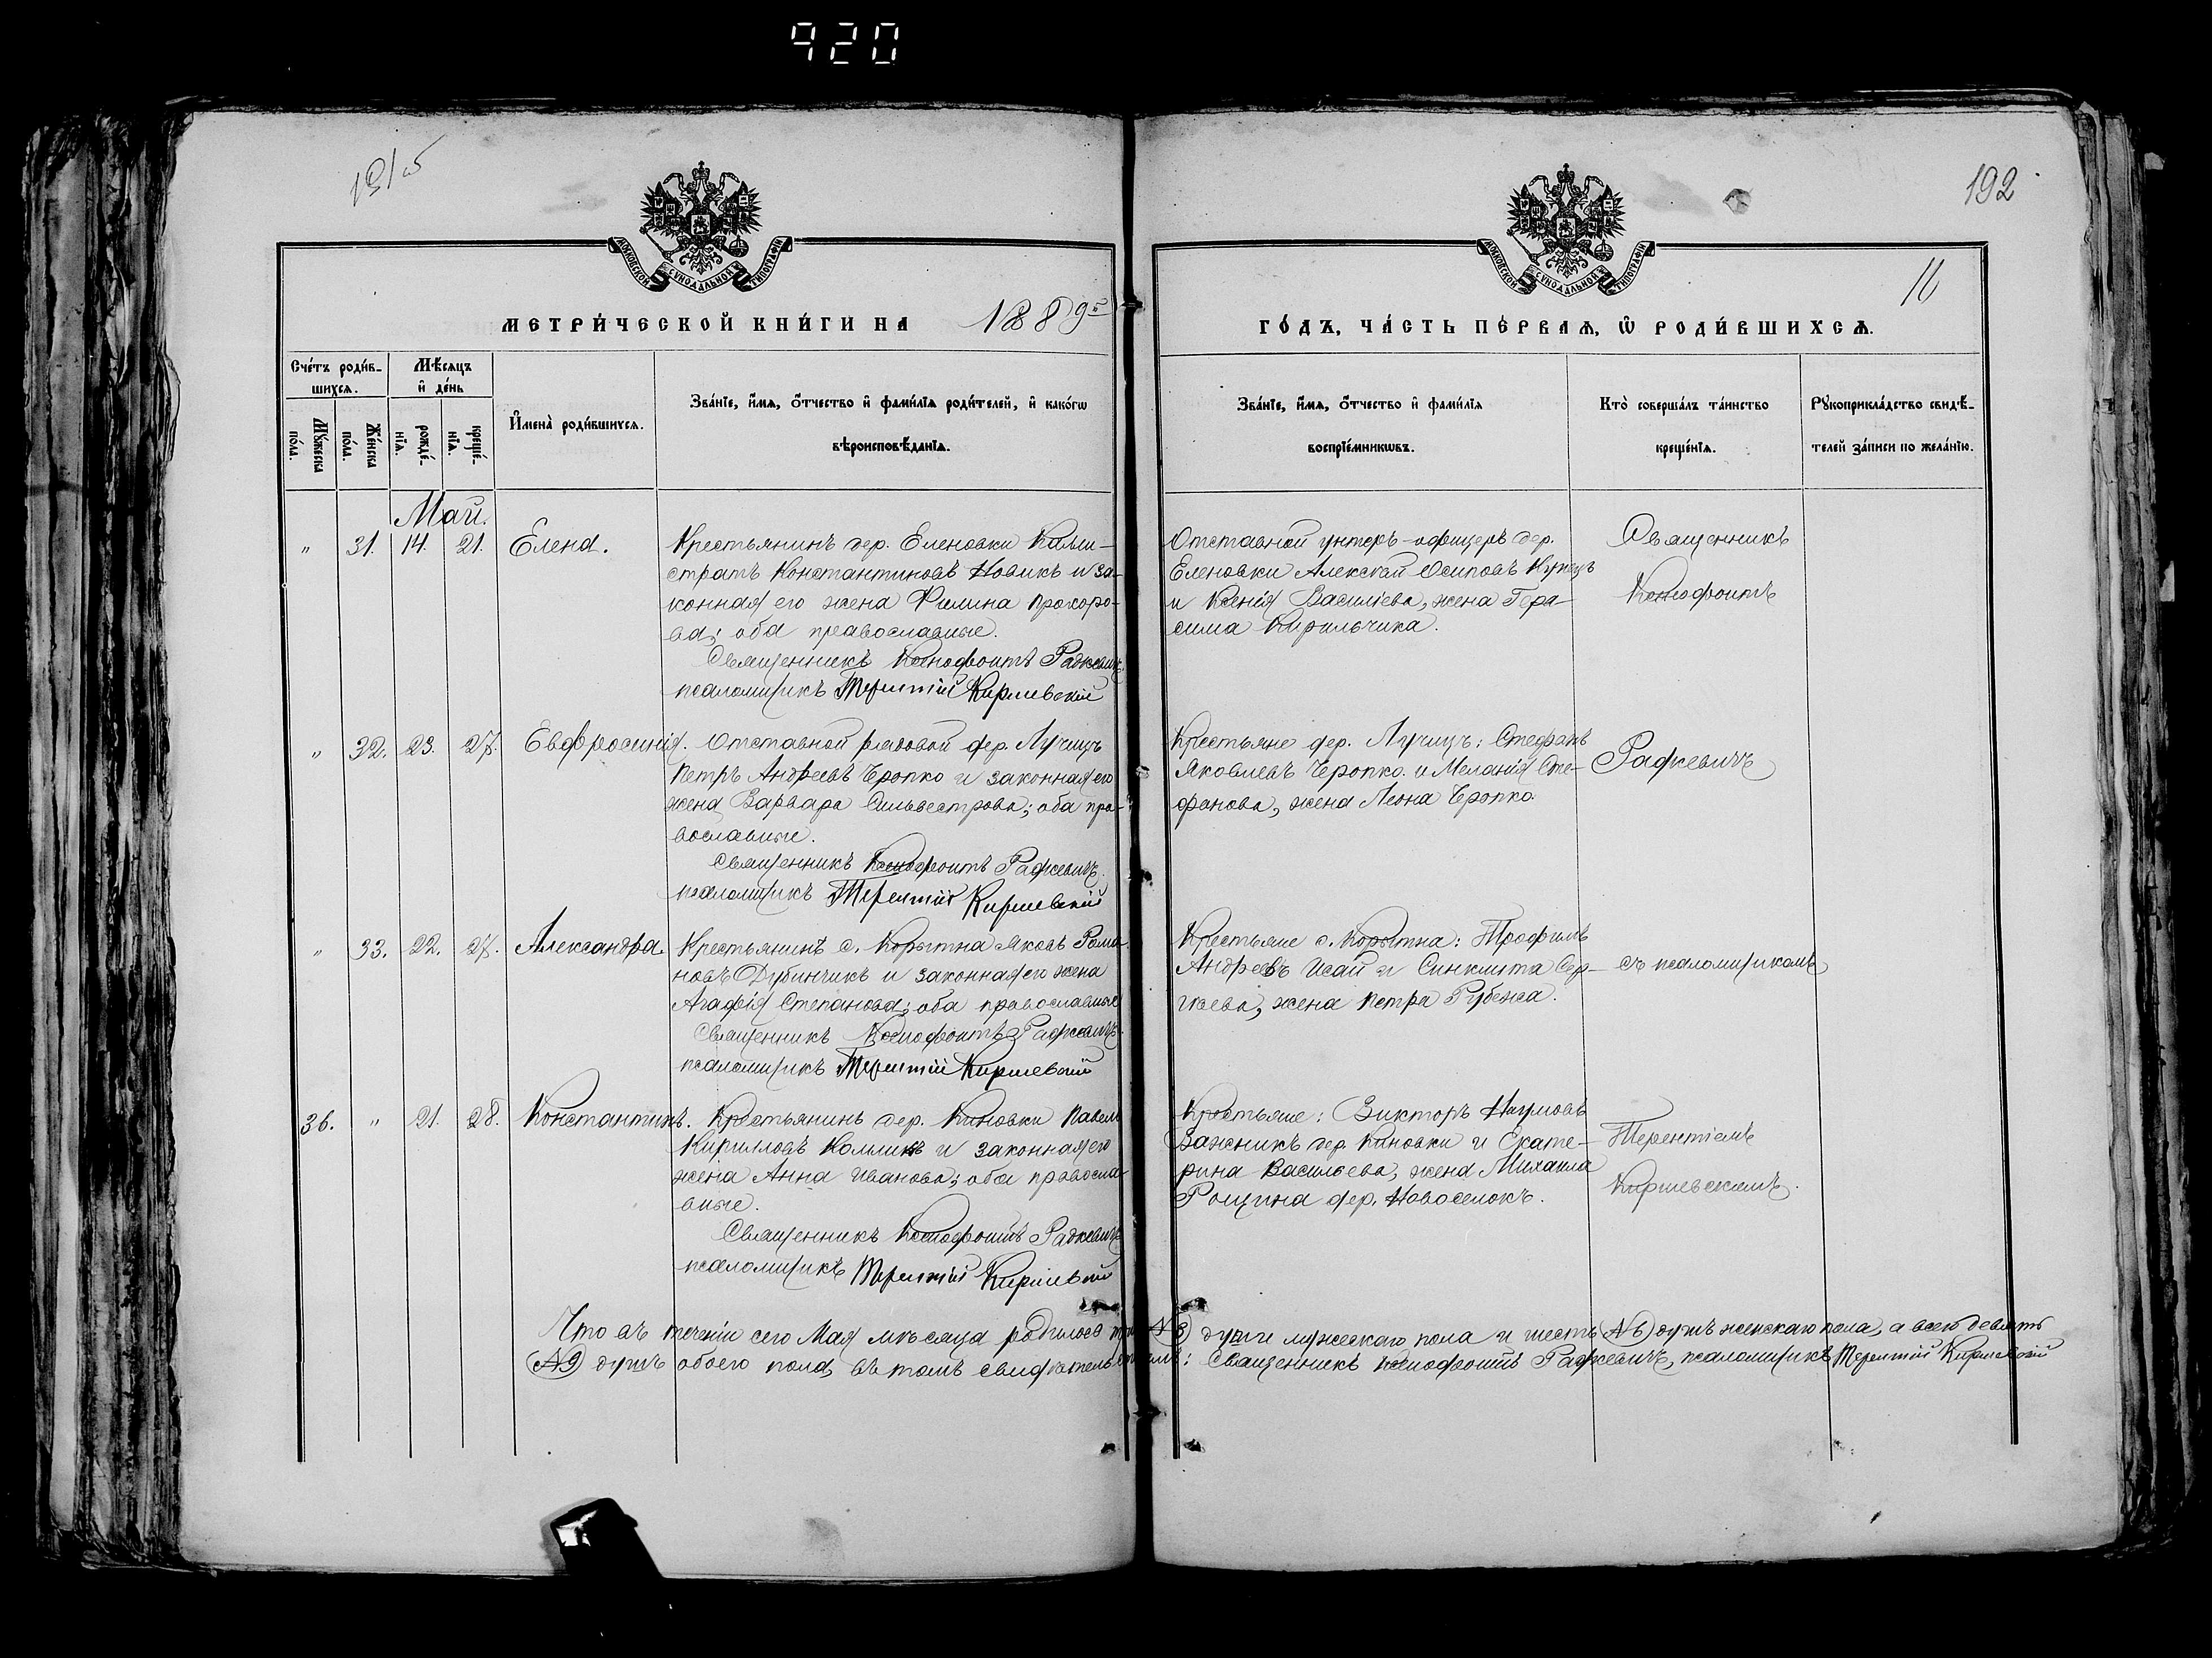 920
191 об
192
11
МОСКОВСКОЙ СѴНОДАЛЬНОЙ ТИПОГРАФІИ
МОСКОВСКОЙ СѴНОДАЛЬНОЙ ТИПОГРАФІИ
МЕТРИ́ЧЕСКОЙ КНИ́ГИ НА 1889й
ГО́ДЪ, ЧА́СТЬ ПЕ́РВАѦ, Ѡ҆ РОДИ́ВШИХСѦ.
Сче́тъ роди́в-
шихсѧ.
Мꙋ́жеска по́ла.
Же́нска по́ла.
Мѣ́сѧцъ
и҆ де́нь
рожде́-
нїѧ.
креще́-
нїѧ.
И҆мена̀ роди́вшихсѧ.
Зва́нїе, и҆́мѧ, ѻ҆́тчество и҆ фами́лїѧ роди́телей, и҆ како́гѡ
вѣроисповѣ́данїѧ.
Зва́нїе, и҆́мѧ, ѻ҆́тчество и҆ фами́лїѧ
воспрїе́мникѡвъ.
Кто̀ соверша́лъ та́инство
креще́нїѧ.
Рꙋкоприкла́дство свидѣ́-
телей за́писи по жела́нїю.
Май.
" 31. 14. 21. Елена.
Крестьянинъ дер. Еленовки Кали-
стратъ Константиновъ Новикъ и за-
конная его жена Филина Прохоро-
ва; оба православные.
Священникъ Ксенофонтъ Радкевичъ
псаломщикъ Терентій Киршевскій
Отставной унтеръ-офицеръ дер.
Еленовки Алексѣй Осиповъ
и Ксенія Василіева, жена Гера-
сима Кирильчика.
Священникъ
Ксенофонтъ
" 32. 23. 27. Евфросинія.
Отставной рядовой дер. Лучицъ
Петръ Андреевъ Чропко и законная его
жена Варвара Сильвестрова; оба пра-
вославные.
Священникъ Ксенофонтъ Радкевичъ.
псаломщикъ Терентій Киршевскій
Крестьяне дер. Лучицъ: Стефанъ
Яковлевъ Чропко и Меланія Сте-
фанова, жена Леона Чропко.
Радкевичъ
" 33. 22. 27. Александра.
Крестьянинъ с. Корытна Яковъ Рома-
новъ Дубинчикъ и законная его жена
Агафія Степанова; оба православные
Священникъ Ксенофонтъ Радкевичъ.
псаломщикъ Терентій Киршевскій
Крестьяне с. Корытна: Трофимъ
Андреевъ Исай и Синклита Сер-
гѣева, жена Петра Рубежа.
съ псаломщикомъ
36. " 21. 28. Константинъ.
Крестьянинъ дер. Киновки Павелъ
Кирилловъ и законная его
жена Анна Иванова; оба правосла-
вные.
Священникъ Ксенофонтъ Радкевичъ
псаломщикъ Терентій Киршевскій
Крестьяне: Викторъ Наумовъ
Важникъ дер. Киновки и Екате-
рина Васильева, жена Михаила
Рощина дер. Новоселокъ.
Терентіемъ
Киршевскимъ.
Что въ теченіи сего Мая мѣсяца родилось три (№3) души мужескаго пола и шесть (№6) душъ женскаго пола, а всего девять
(№9) душъ обоего пола, въ томъ свидѣтельствуемъ: Священникъ Ксенофонтъ Радкевичъ, псаломщикъ Терентій Киршевскій